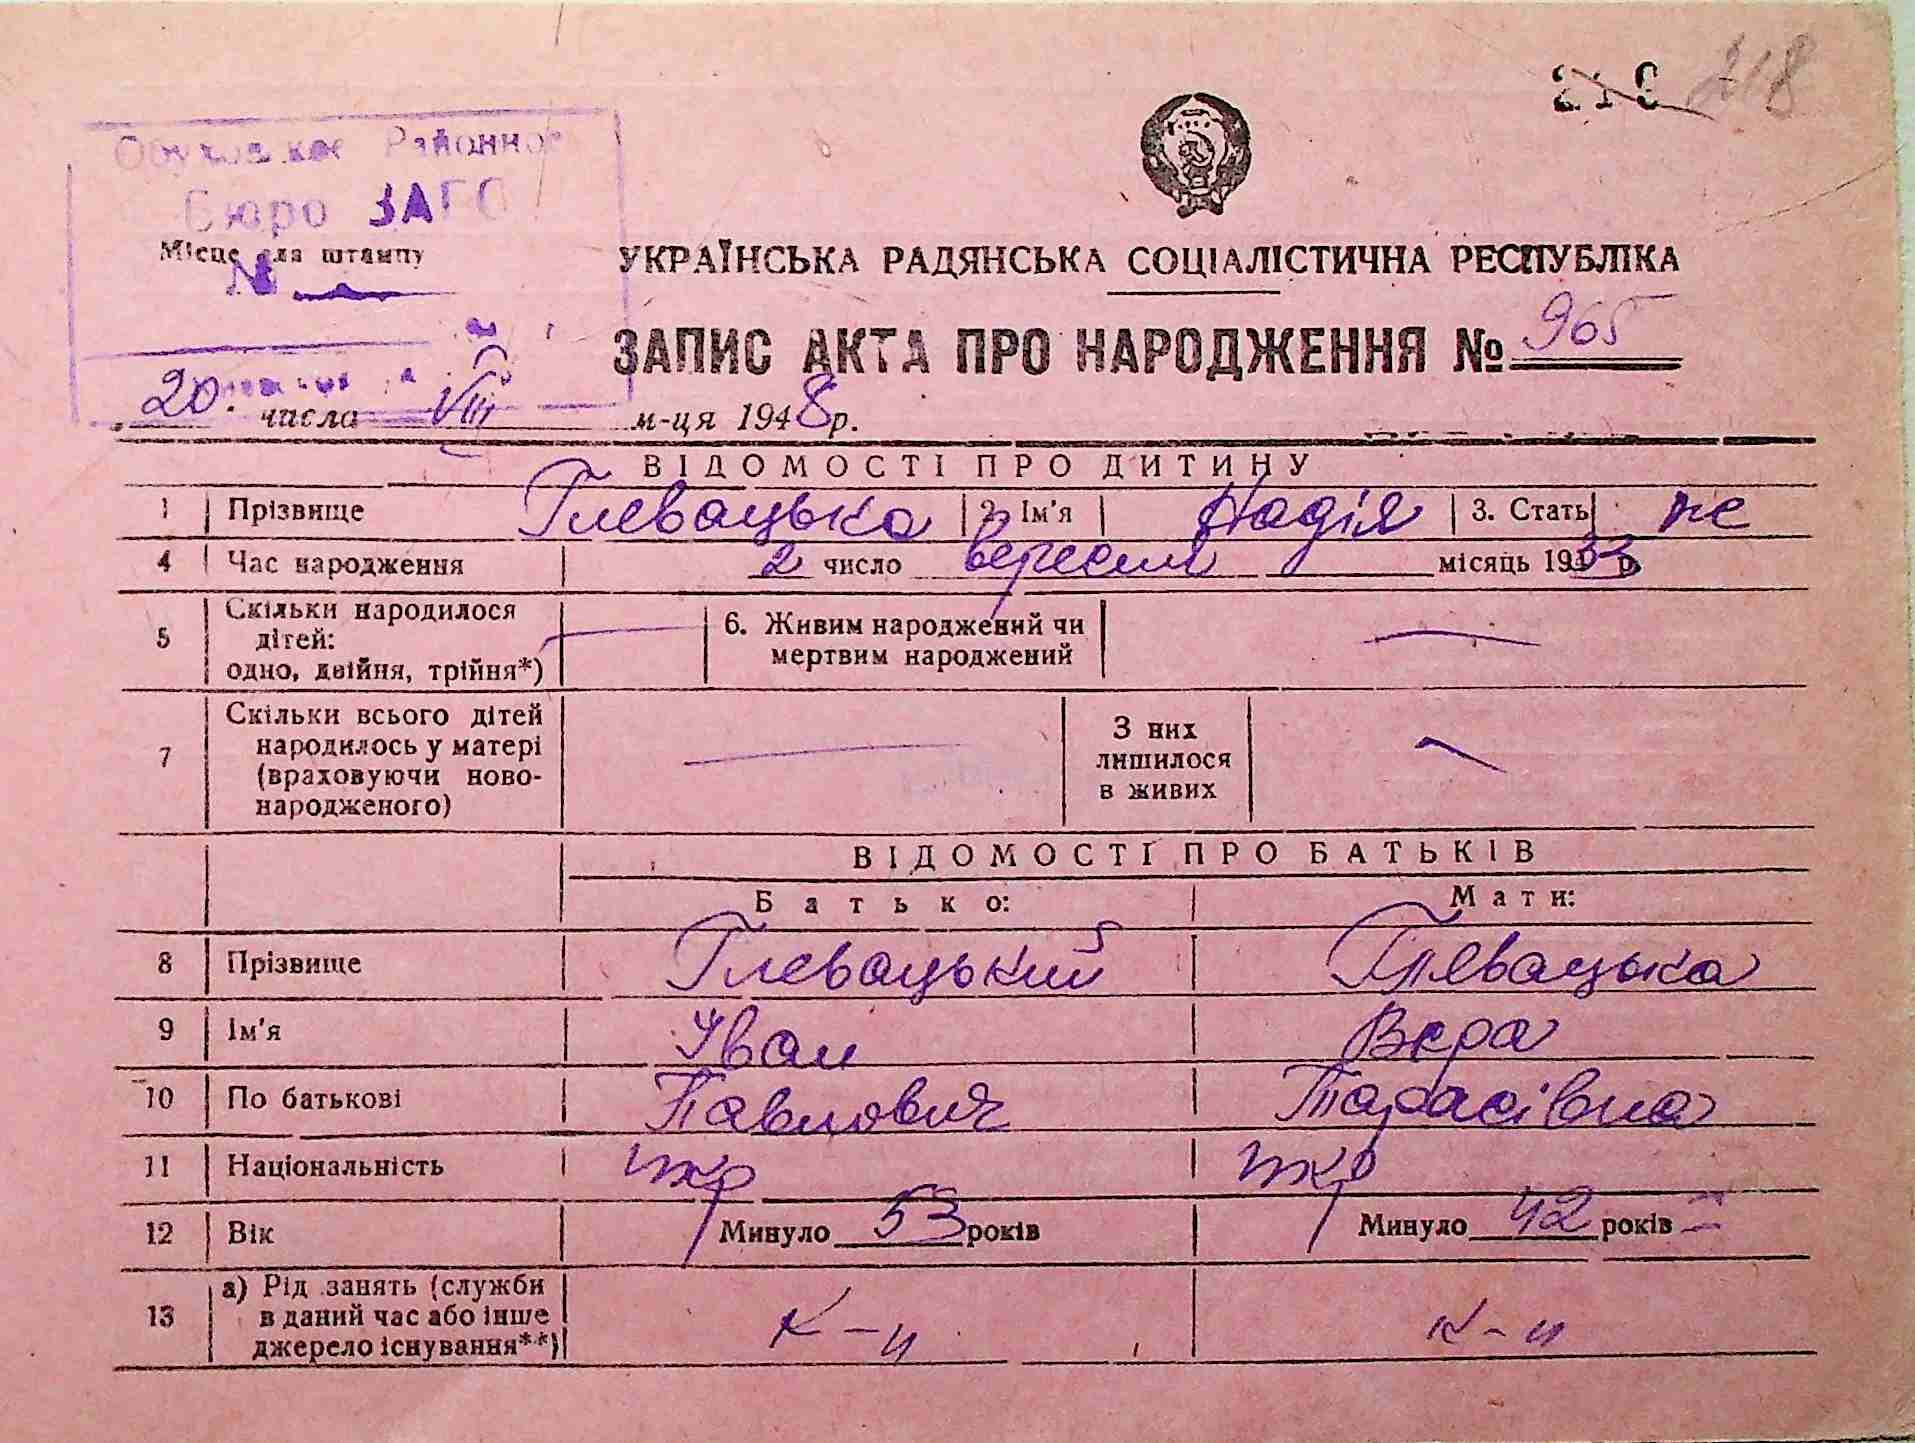 218
Районное
Бюро ЗАГС
Місце для штампу
№
УКРАЇНСЬКА РАДЯНСЬКА СОЦІАЛІСТИЧНА РЕСПУБЛІКА
ЗАПИС АКТА ПРО НАРОДЖЕННЯ № 965
20 числа VIII м-ця 1948 р.
ВІДОМОСТІ ПРО ДИТИНУ
1 Прізвище Глевацька 2. Ім'я Надія 3. Стать же
4 Час народження 2 число вересня місяць 1933 р.
5 Скільки народилося дітей: одно, двійня, трійня*) — 6. Живим народжений чи мертвим народжений —
7 Скільки всього дітей народилось у матері (враховуючи ново-народженого) — З них лишилося в живих —
ВІДОМОСТІ ПРО БАТЬКІВ
Батько: Мати:
8 Прізвище Глевацький Глевацька
9 Ім'я Іван Вера
10 По батькові Павлович Тарасівна
11 Національність укр укр
12 Вік Минуло 53 років Минуло 42 років
13 а) Рід занять (служби в даний час або інше джерело існування**) к-н к-н